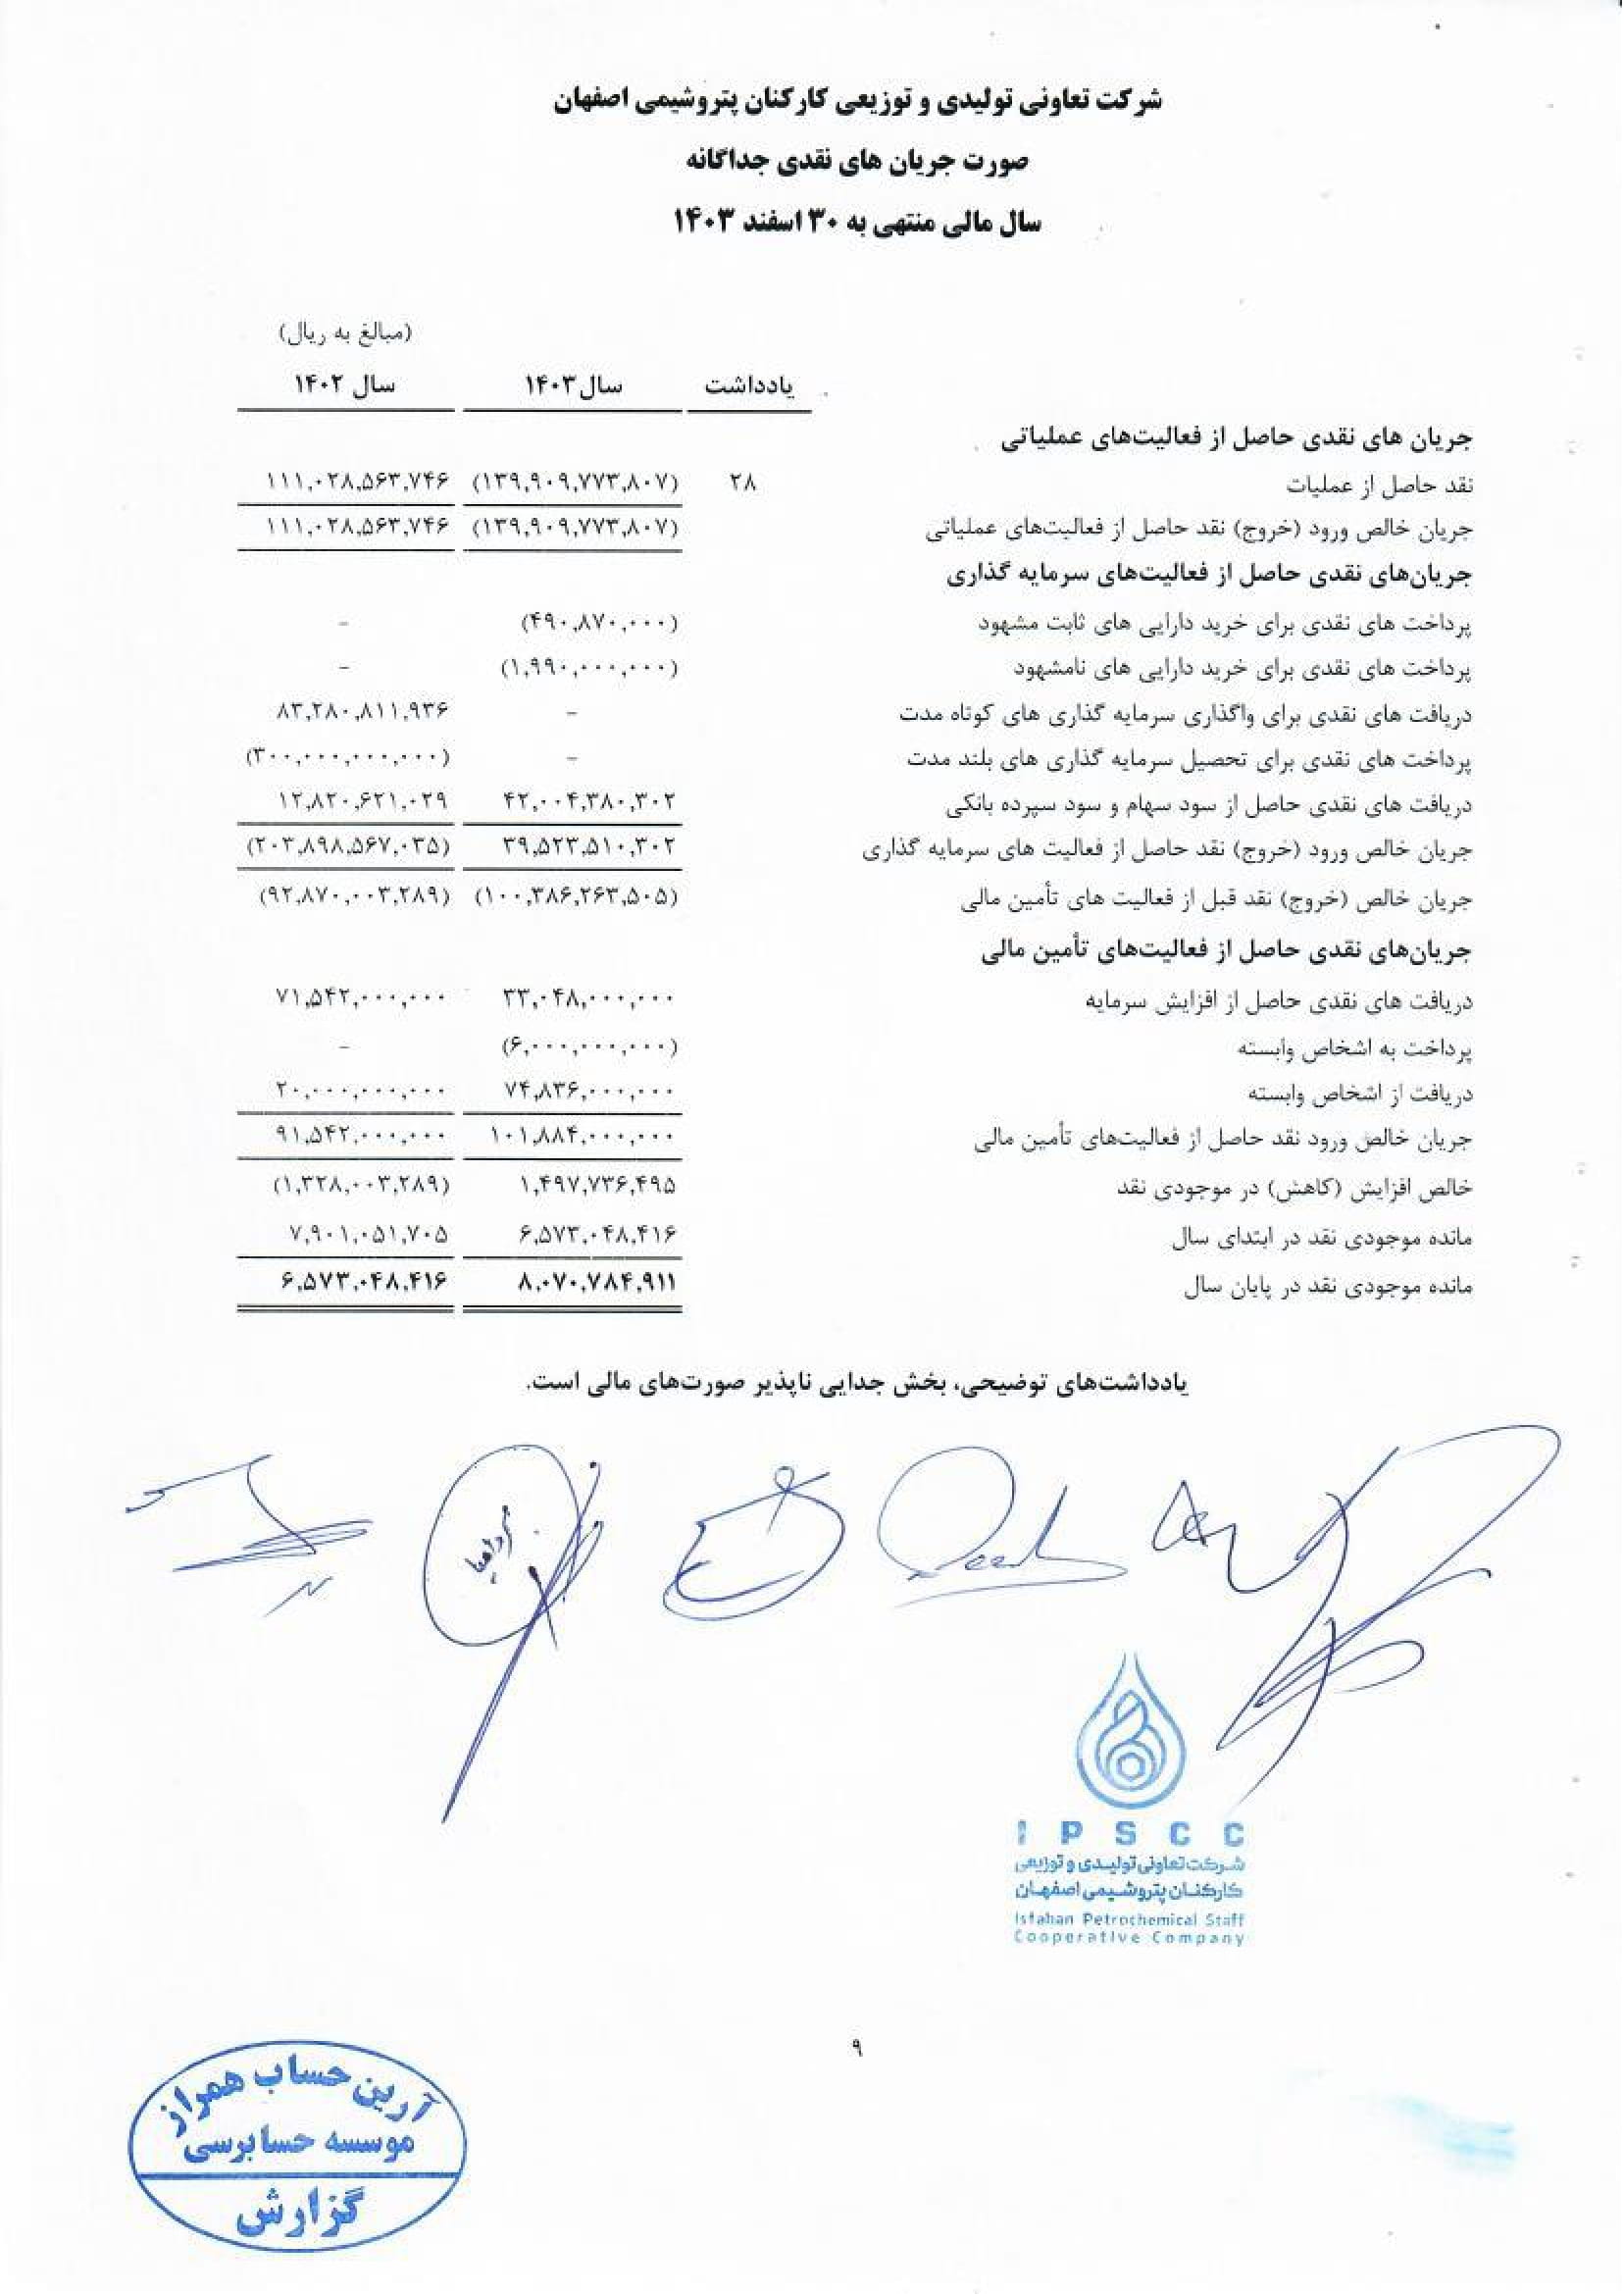 شرکت تعاونی تولیدی و توزیعی کارکنان پتروشیمی اصفهان
صورت جریان های نقدی جداگانه
سال مالی منتهی به ۳۰ اسفند ۱۴۰۳
(مبالغ به ریال)
یادداشت سال ۱۴۰۳ سال ۱۴۰۲
جریان های نقدی حاصل از فعالیت‌های عملیاتی
نقد حاصل از عملیات ۲۸ (۱۳۹,۹۰۹,۷۷۳,۸۰۷) ۱۱۱,۰۲۸,۵۶۳,۷۴۶
جریان خالص ورود (خروج) نقد حاصل از فعالیت‌های عملیاتی (۱۳۹,۹۰۹,۷۷۳,۸۰۷) ۱۱۱,۰۲۸,۵۶۳,۷۴۶
جریان‌های نقدی حاصل از فعالیت‌های سرمایه گذاری
پرداخت های نقدی برای خرید دارایی های ثابت مشهود (۴۹۰,۸۷۰,۰۰۰) -
پرداخت های نقدی برای خرید دارایی های نامشهود (۱,۹۹۰,۰۰۰,۰۰۰) -
دریافت های نقدی برای واگذاری سرمایه گذاری های کوتاه مدت - ۸۳,۲۸۰,۸۱۱,۹۳۶
پرداخت های نقدی برای تحصیل سرمایه گذاری های بلند مدت - (۳۰۰,۰۰۰,۰۰۰,۰۰۰)
دریافت های نقدی حاصل از سود سهام و سود سپرده بانکی ۴۲,۰۰۴,۳۸۰,۳۰۲ ۱۲,۸۲۰,۶۲۱,۰۲۹
جریان خالص ورود (خروج) نقد حاصل از فعالیت های سرمایه گذاری ۳۹,۵۲۳,۵۱۰,۳۰۲ (۲۰۳,۸۹۸,۵۶۷,۰۳۵)
جریان خالص (خروج) نقد قبل از فعالیت های تأمین مالی (۱۰۰,۳۸۶,۲۶۳,۵۰۵) (۹۲,۸۷۰,۰۰۳,۲۸۹)
جریان‌های نقدی حاصل از فعالیت‌های تأمین مالی
دریافت های نقدی حاصل از افزایش سرمایه ۳۳,۰۴۸,۰۰۰,۰۰۰ ۷۱,۵۴۲,۰۰۰,۰۰۰
پرداخت به اشخاص وابسته (۶,۰۰۰,۰۰۰,۰۰۰) -
دریافت از اشخاص وابسته ۷۴,۸۳۶,۰۰۰,۰۰۰ ۲۰,۰۰۰,۰۰۰,۰۰۰
جریان خالص ورود نقد حاصل از فعالیت‌های تأمین مالی ۱۰۱,۸۸۴,۰۰۰,۰۰۰ ۹۱,۵۴۲,۰۰۰,۰۰۰
خالص افزایش (کاهش) در موجودی نقد ۱,۴۹۷,۷۳۶,۴۹۵ (۱,۳۲۸,۰۰۳,۲۸۹)
مانده موجودی نقد در ابتدای سال ۶,۵۷۳,۰۴۸,۴۱۶ ۷,۹۰۱,۰۵۱,۷۰۵
مانده موجودی نقد در پایان سال ۸,۰۷۰,۷۸۴,۹۱۱ ۶,۵۷۳,۰۴۸,۴۱۶
یادداشت‌های توضیحی، بخش جدایی ناپذیر صورت‌های مالی است.
I P S C C
شرکت تعاونی تولیدی و توزیعی
کارکنان پتروشیمی اصفهان
Isfahan Petrochemical Staff
Cooperative Company
۹
آرین حساب همراز
موسسه حسابرسی
گزارش